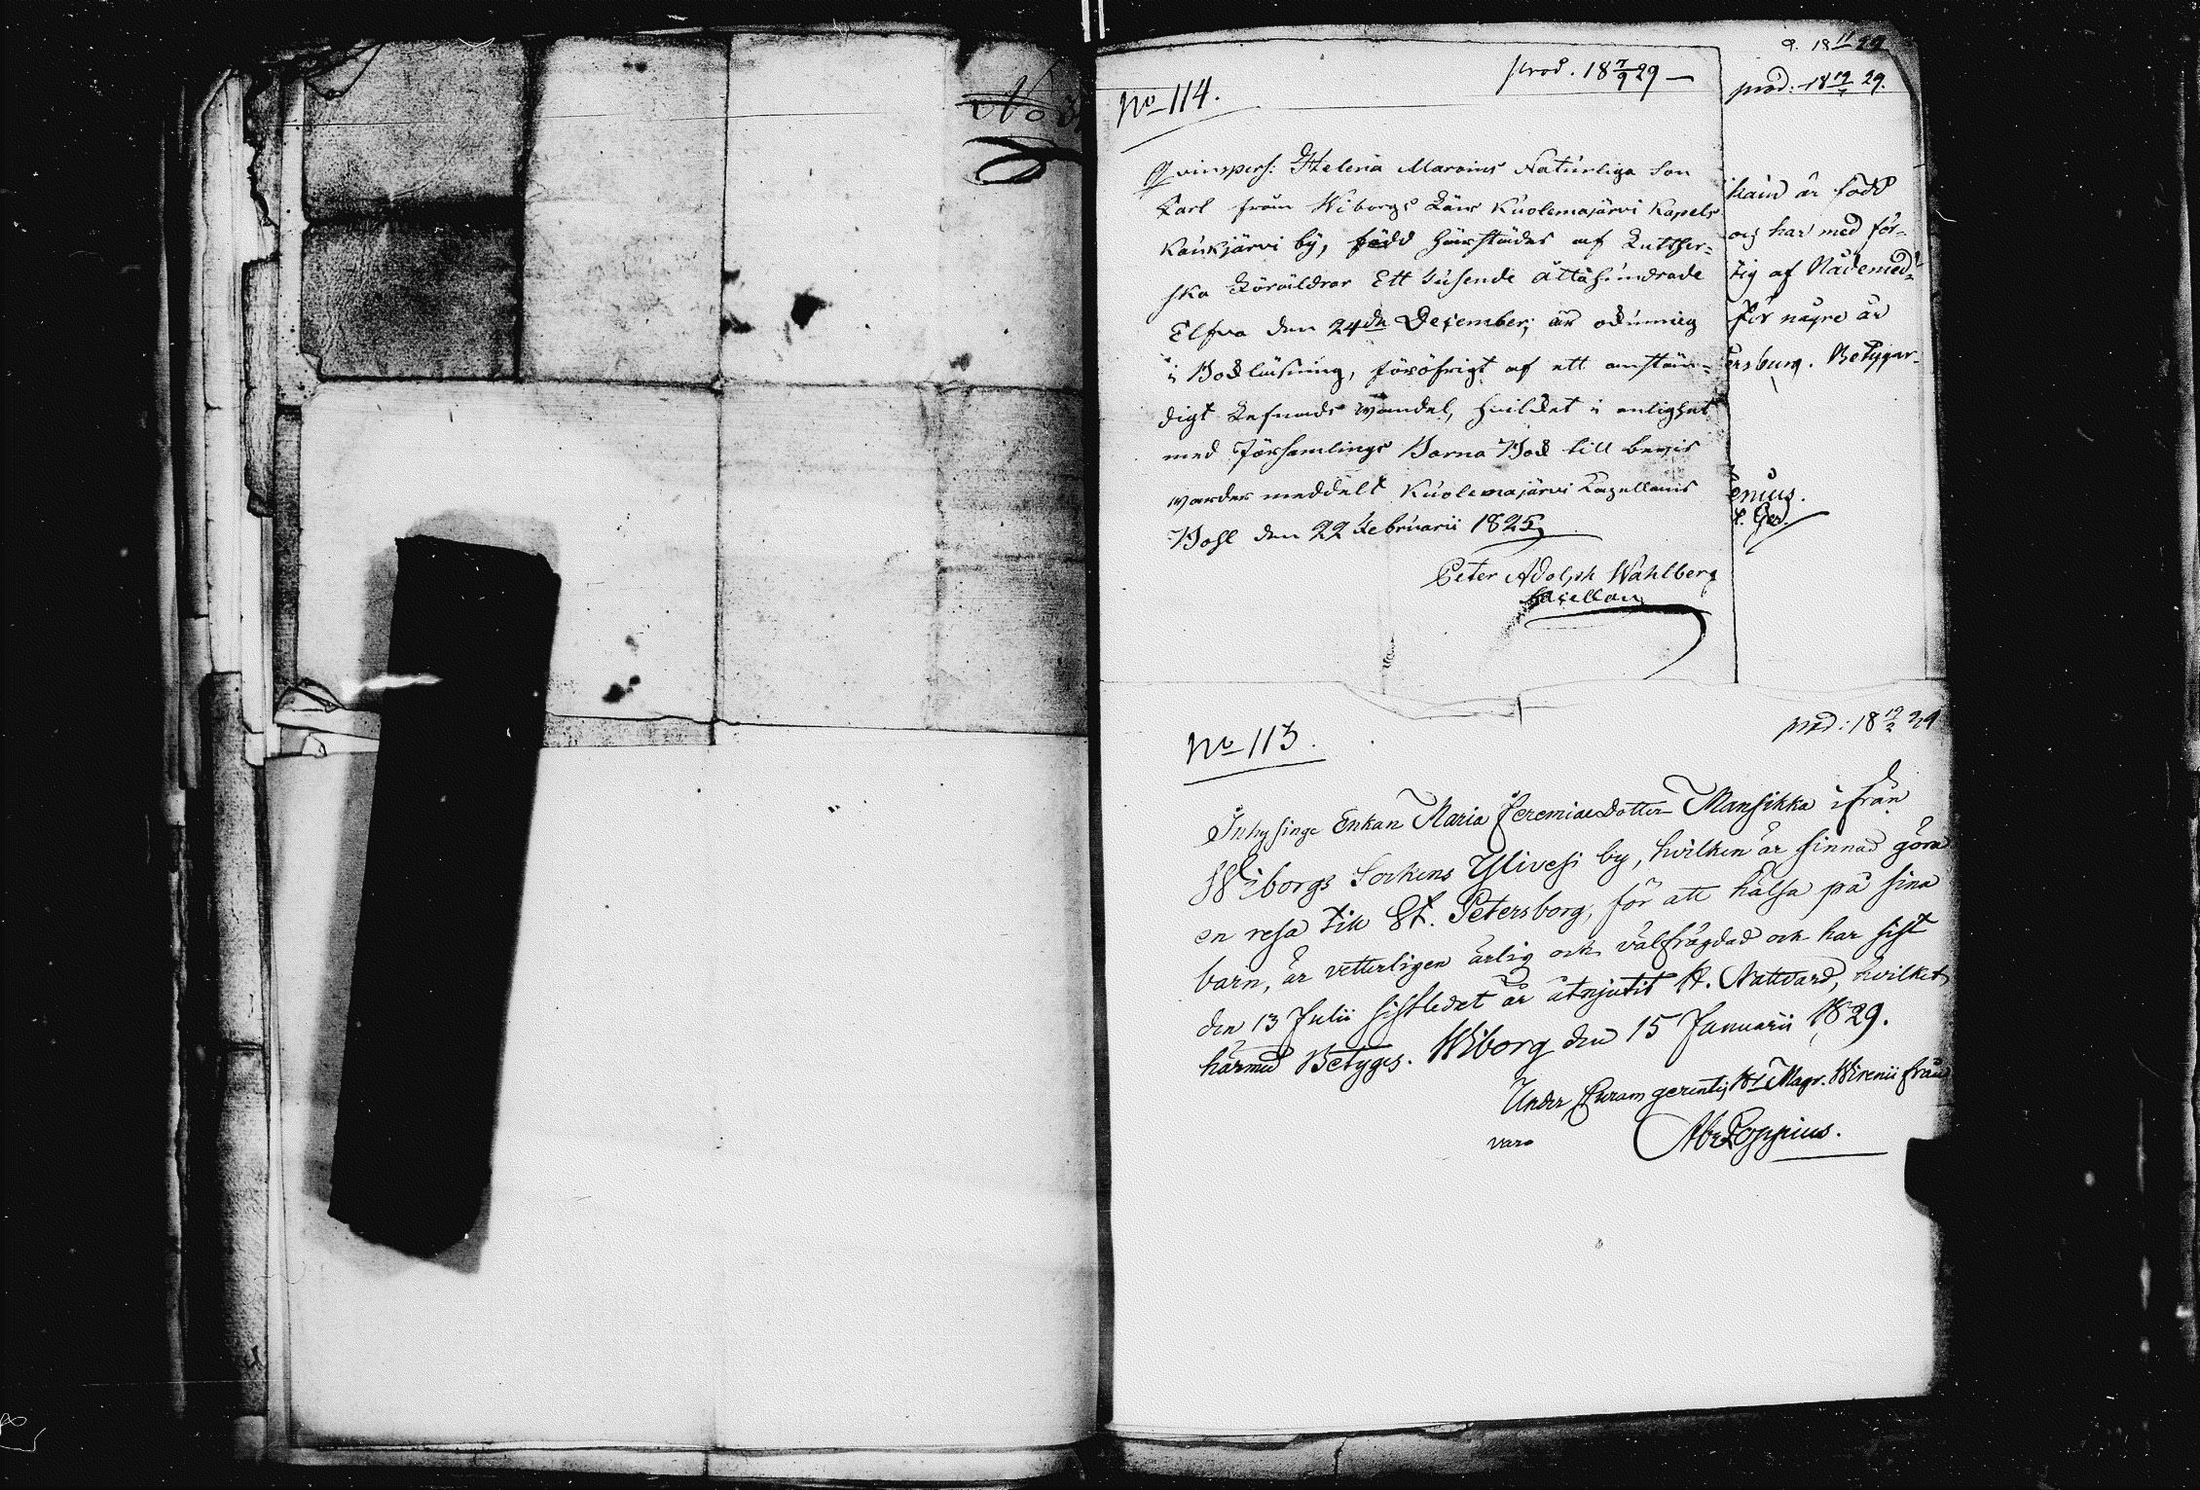 No 114.
prod. 18 7/9 29
Qvinspers: Helena Marvins Naturliga Son
Karl från Wiborgs Län Kuolemajärvi Kapels
Kaukjärvi by, född härstädes af Luther-
ska Föräldrar Ett tusende åttahundrade
Elfva den 24de December, är okunnig
i Bokläsning, föröfrigt af ett anstän-
digt Lefnads wandel, hvilket i enlighet
med Församlings Barna Bok till bewis
warder meddelt Kuolemajärvi Capellans
Bohl den 22 Februarii 1825
Peter Adolph Wahlberg
Capellan
18 11 29
prod. 18 19 29.
han är född
och har med för-
tig af Nådemed-
för någre år
ersburg. Betygar-
enius.
No 113.
prod: 18 19/2 29
Inhysinge Enkan Maria Jeremiaedotter Mansikka ifrån
Wiborgs Sockens Ylivesi by, hvilken är sinnad göra
en resa till St. Petersborg, för att hälsa på sina
barn, är vetterligen ärlig och välfrägdad och har sist
den 13 Julii sistledet år åtnjutit H. Nattvard, hvilket
härmed Betyges. Wiborg den 15 Januarii 1829.
Under Curam gerentis Mag. Wirenii från
varo
Abr Poppius.